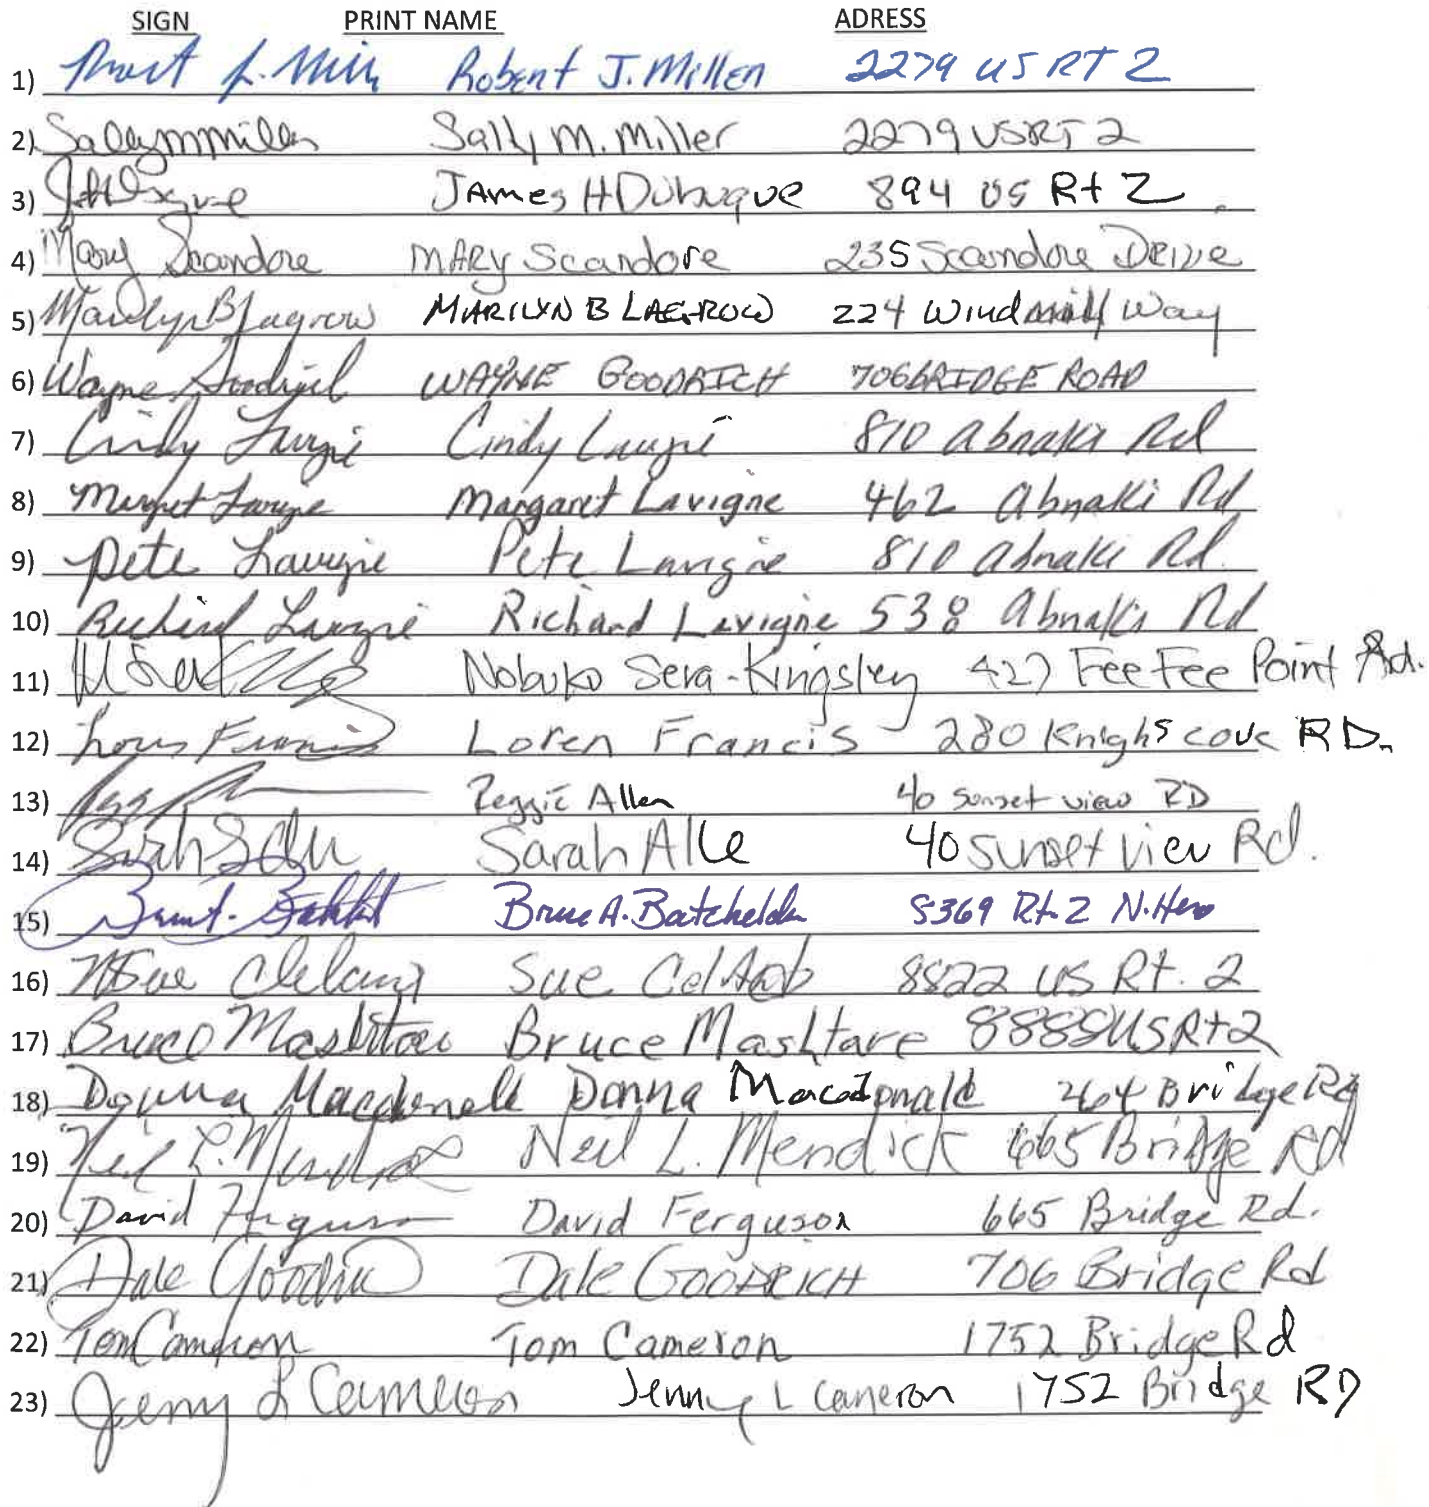 SIGN PRINT NAME ADRESS
1) Robert J. Miller 2279 US RT 2
2) Sally M Miller Sally M. Miller 2279 US RT 2
3) JAMes H Dubuque 894 US Rt 2
4) Mary Scandore MARY Scandore 235 Scandore Drive
5) Marilyn B Lagrow MARILYN B LAGROW 224 Windmill Way
6) Wayne Goodrich WAYNE GOODRICH 706 BRIDGE ROAD
7) Cindy Lavigne Cindy Lavigne 810 Abnaki Rd
8) Margaret Lavigne Margaret Lavigne 462 Abnaki Rd
9) Pete Lavigne Pete Lavigne 810 Abnaki Rd.
10) Richard Lavigne Richard Lavigne 538 Abnaki Rd
11) Nobuko Sera-Kingsley 427 Fee Fee Point Rd.
12) Loren Francis Loren Francis 280 Knighs cove RD.
13) Reggie Allen 40 Sunset view RD
14) Sarah Alle 40 Sunset View Rd.
15) Bruce A. Batchelder 5369 Rt. 2 N. Hero
16) Sue Sue 8822 US Rt. 2
17) Bruce Mashtare Bruce Mashtare 8888 US Rt 2
18) Donna Macdonald Donna Macdonald 264 Bridge Rd
19) Neil L. Mendick Neil L. Mendick 665 Bridge Rd
20) David Ferguson David Ferguson 665 Bridge Rd.
21) Dale Goodrich Dale GOODRICH 706 Bridge Rd
22) Tom Cameron Tom Cameron 1752 Bridge Rd
23) Jenny L Cameron Jenny L Cameron 1752 Bridge RD